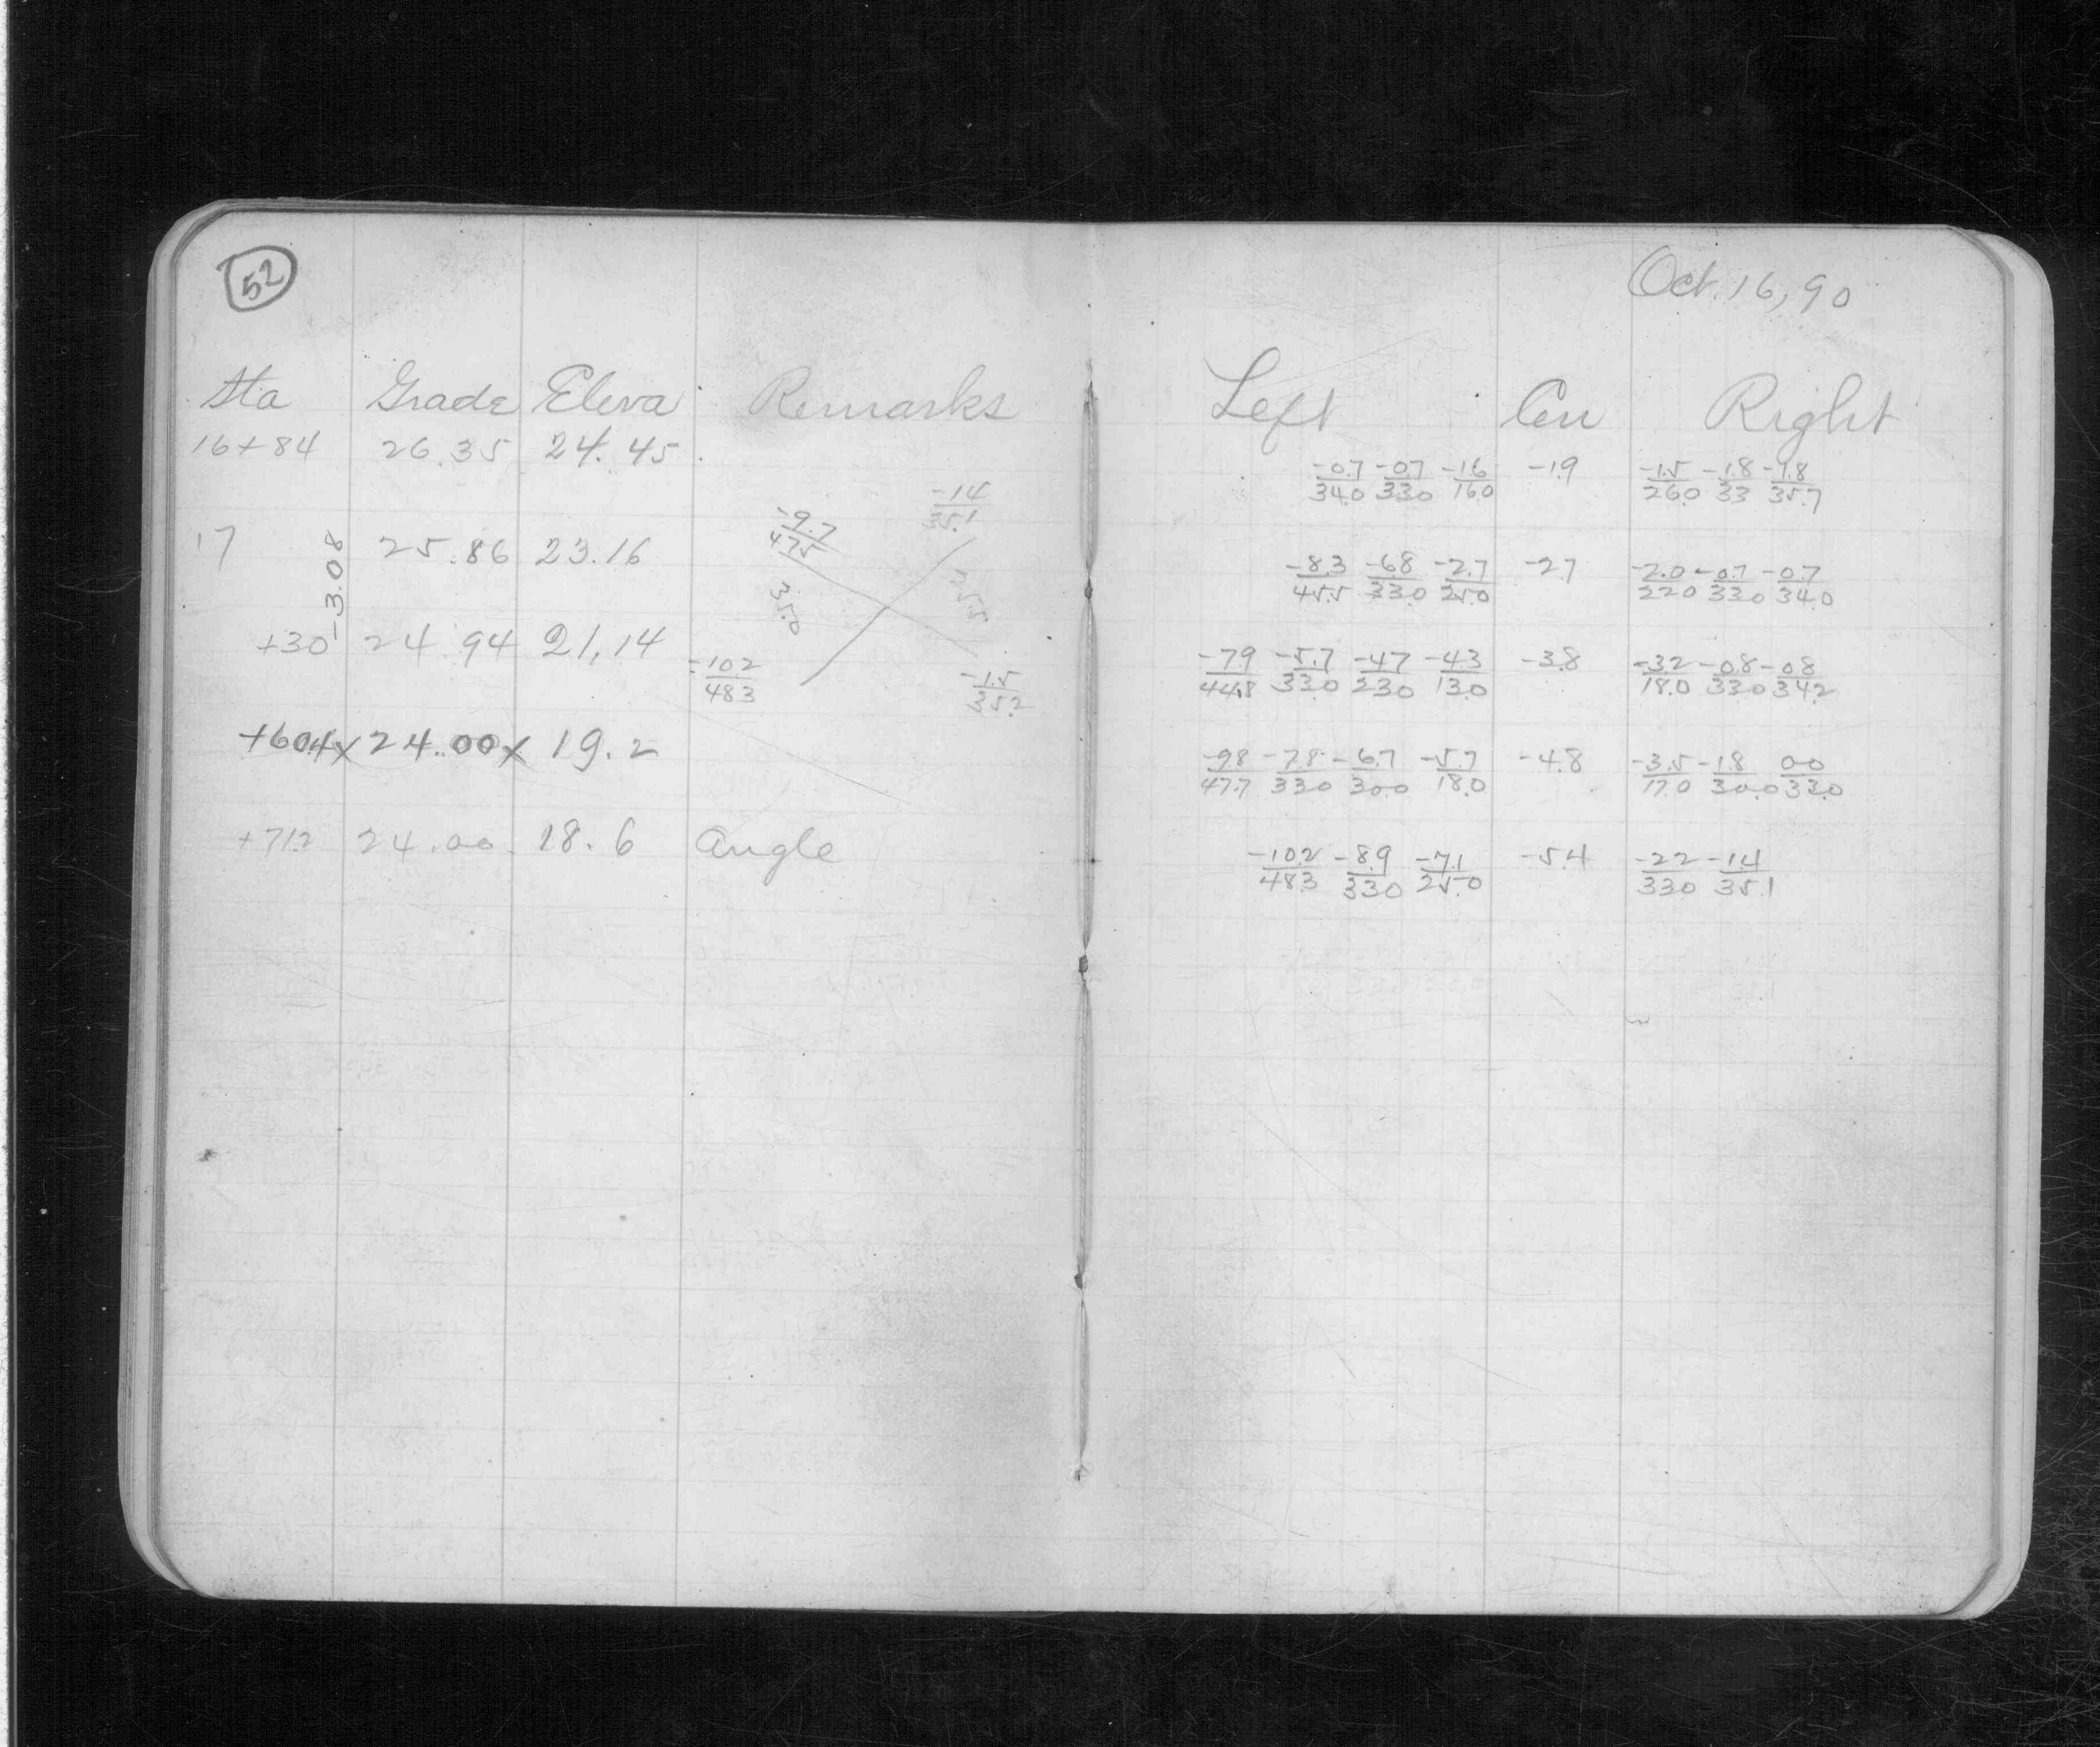 52
Sta Grade Eleva Remarks
16+84 26.35 24.45
-9.7/47.5 -1.4/35.1
17 25.86 23.16
-3.08
35.0
+30 24.94 21.14
-10.2/48.3 -1.5/35.2
+604x 24.00x 19.2
+71.2 24.00 18.6 Angle
Oct. 16, 90
Left Cen Right
-0.7/34.0 -0.7/33.0 -1.6/16.0 -1.9 -1.5/26.0 -1.8/33 -1.8/35.7
-8.3/45.5 -6.8/33.0 -2.7/25.0 -2.7 -2.0/22.0 -0.7/33.0 -0.7/34.0
-7.9/44.8 -5.7/33.0 -4.7/23.0 -4.3/13.0 -3.8 -3.2/18.0 -0.8/33.0 -0.8/34.2
-9.8/47.7 -7.8/33.0 -6.7/30.0 -5.7/18.0 -4.8 -3.5/17.0 -1.8/30.0 0.0/33.0
-10.2/48.3 -8.9/33.0 -7.1/25.0 -5.4 -2.2/33.0 -1.4/35.1